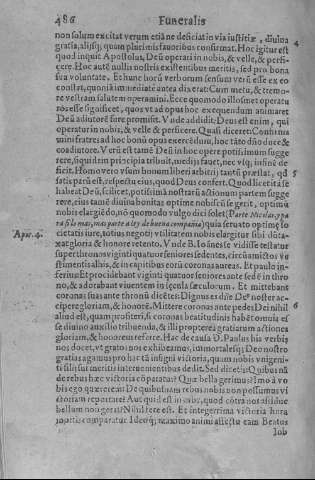 486 Funeralis
non salum excitat verum etiā ne deficiat in via iustitiæ, diuina
gratia, alijsq; quam plurimis fauoribus confirmat. Hoc igitur est
quod inquit Apostolus, Deū operari in nobis, & velle, & perfi-
cere. Hoc autē nullis nostris existentibus meritis, sed pro bona
sua voluntate. Et hunc horū verborum sensum verū esse ex eo
constat, quonia immediate autea dixerat: Cum metu, & tremo-
re vestram salutem operamini. Ecce quomodo illos met operatu
ros esse significet, quos vt ad opus hoc exequendum animaret
Deū adiutorē fore promisit. Vnde addidit: Deus est enim, qui
operatur in nobis, & velle & perficere. Quasi diceret: Confirma
mini fratres ad hoc bonū opus exercēdum, hoc tāto dño duce &
coadiutore. Verū est tamē Deū in hoc opere potissimum sugge
rere, siquidem principia tribuit, medijs fauet, nec vsq; in finē de
ficit. Homo vero vsum bonum liberi arbitrij tantū præstat, qđ
satis parū est, respectu eius, quod Deus confert. Quod licet ita se
habeat Deū, scilicet, potissimā nostrarū actionum partem sugge
rere, eius tamē diuina bonitas optime nobiscū se gerit, optimū
nobis elargiēdo, nō quomodo vulgo dici solet (Parte Nicolas, ppa
ra si lo mas, mas parte a ley de buena compañia) quia seruato optimo
cietatis iure, totius negotij vtilitatem nobis elargitur sibi dūta-
Apoc. 4. xat gloria & honore retento. Vnde B. Ioānes se vidisse testatur
super thronos viginti quatuor seniores sedentes, circūamictos ve
stimentis albis, & in capitibus eorū coronas aureas. Et paulo in-
ferius: Et procidebant viginti quatuor seniores ante sedētē in thro
no, & adorabant viuentem in sęcula sæculorum. Et mittebant
coronas suas ante thronū dicētes: Dignus es dñe Deº noster ac-
cipere gloriam, & honorē. Mittere coronas ante pedes Dei nihil
aliud est, quam profiteri, si coronas beatitudinis habēt omnia es
se diuino auxilio tribuenda, & illi propterea gratiarum actiones
gloriam, & honorem referre. Hac de causa D. Paulus his verbis
nos docet, vt grato nos exhibeamus, immortalesq; Deo nostro
gratias agamus pro hac tā insigni victoria, quam nobis vnigeni-
ti filij sui meritis interuenientibus dedit. Sed dicetis: Quibus nā
de rebus hæc victoria cōparatur? Quæ bella gerimus? Imo à vo
bis ego quærerem: De quibusnam rebus nobis non possumus vi
ctoriam reportare? Aut quid est in orbe, quod cōtra nos assidue
bellum non gerit? Nihil fere est. Et integerrima victoria hæc
mortis comparatur. Ideoq; maximo animi affectu eam Beatus
Iob
4
5
6